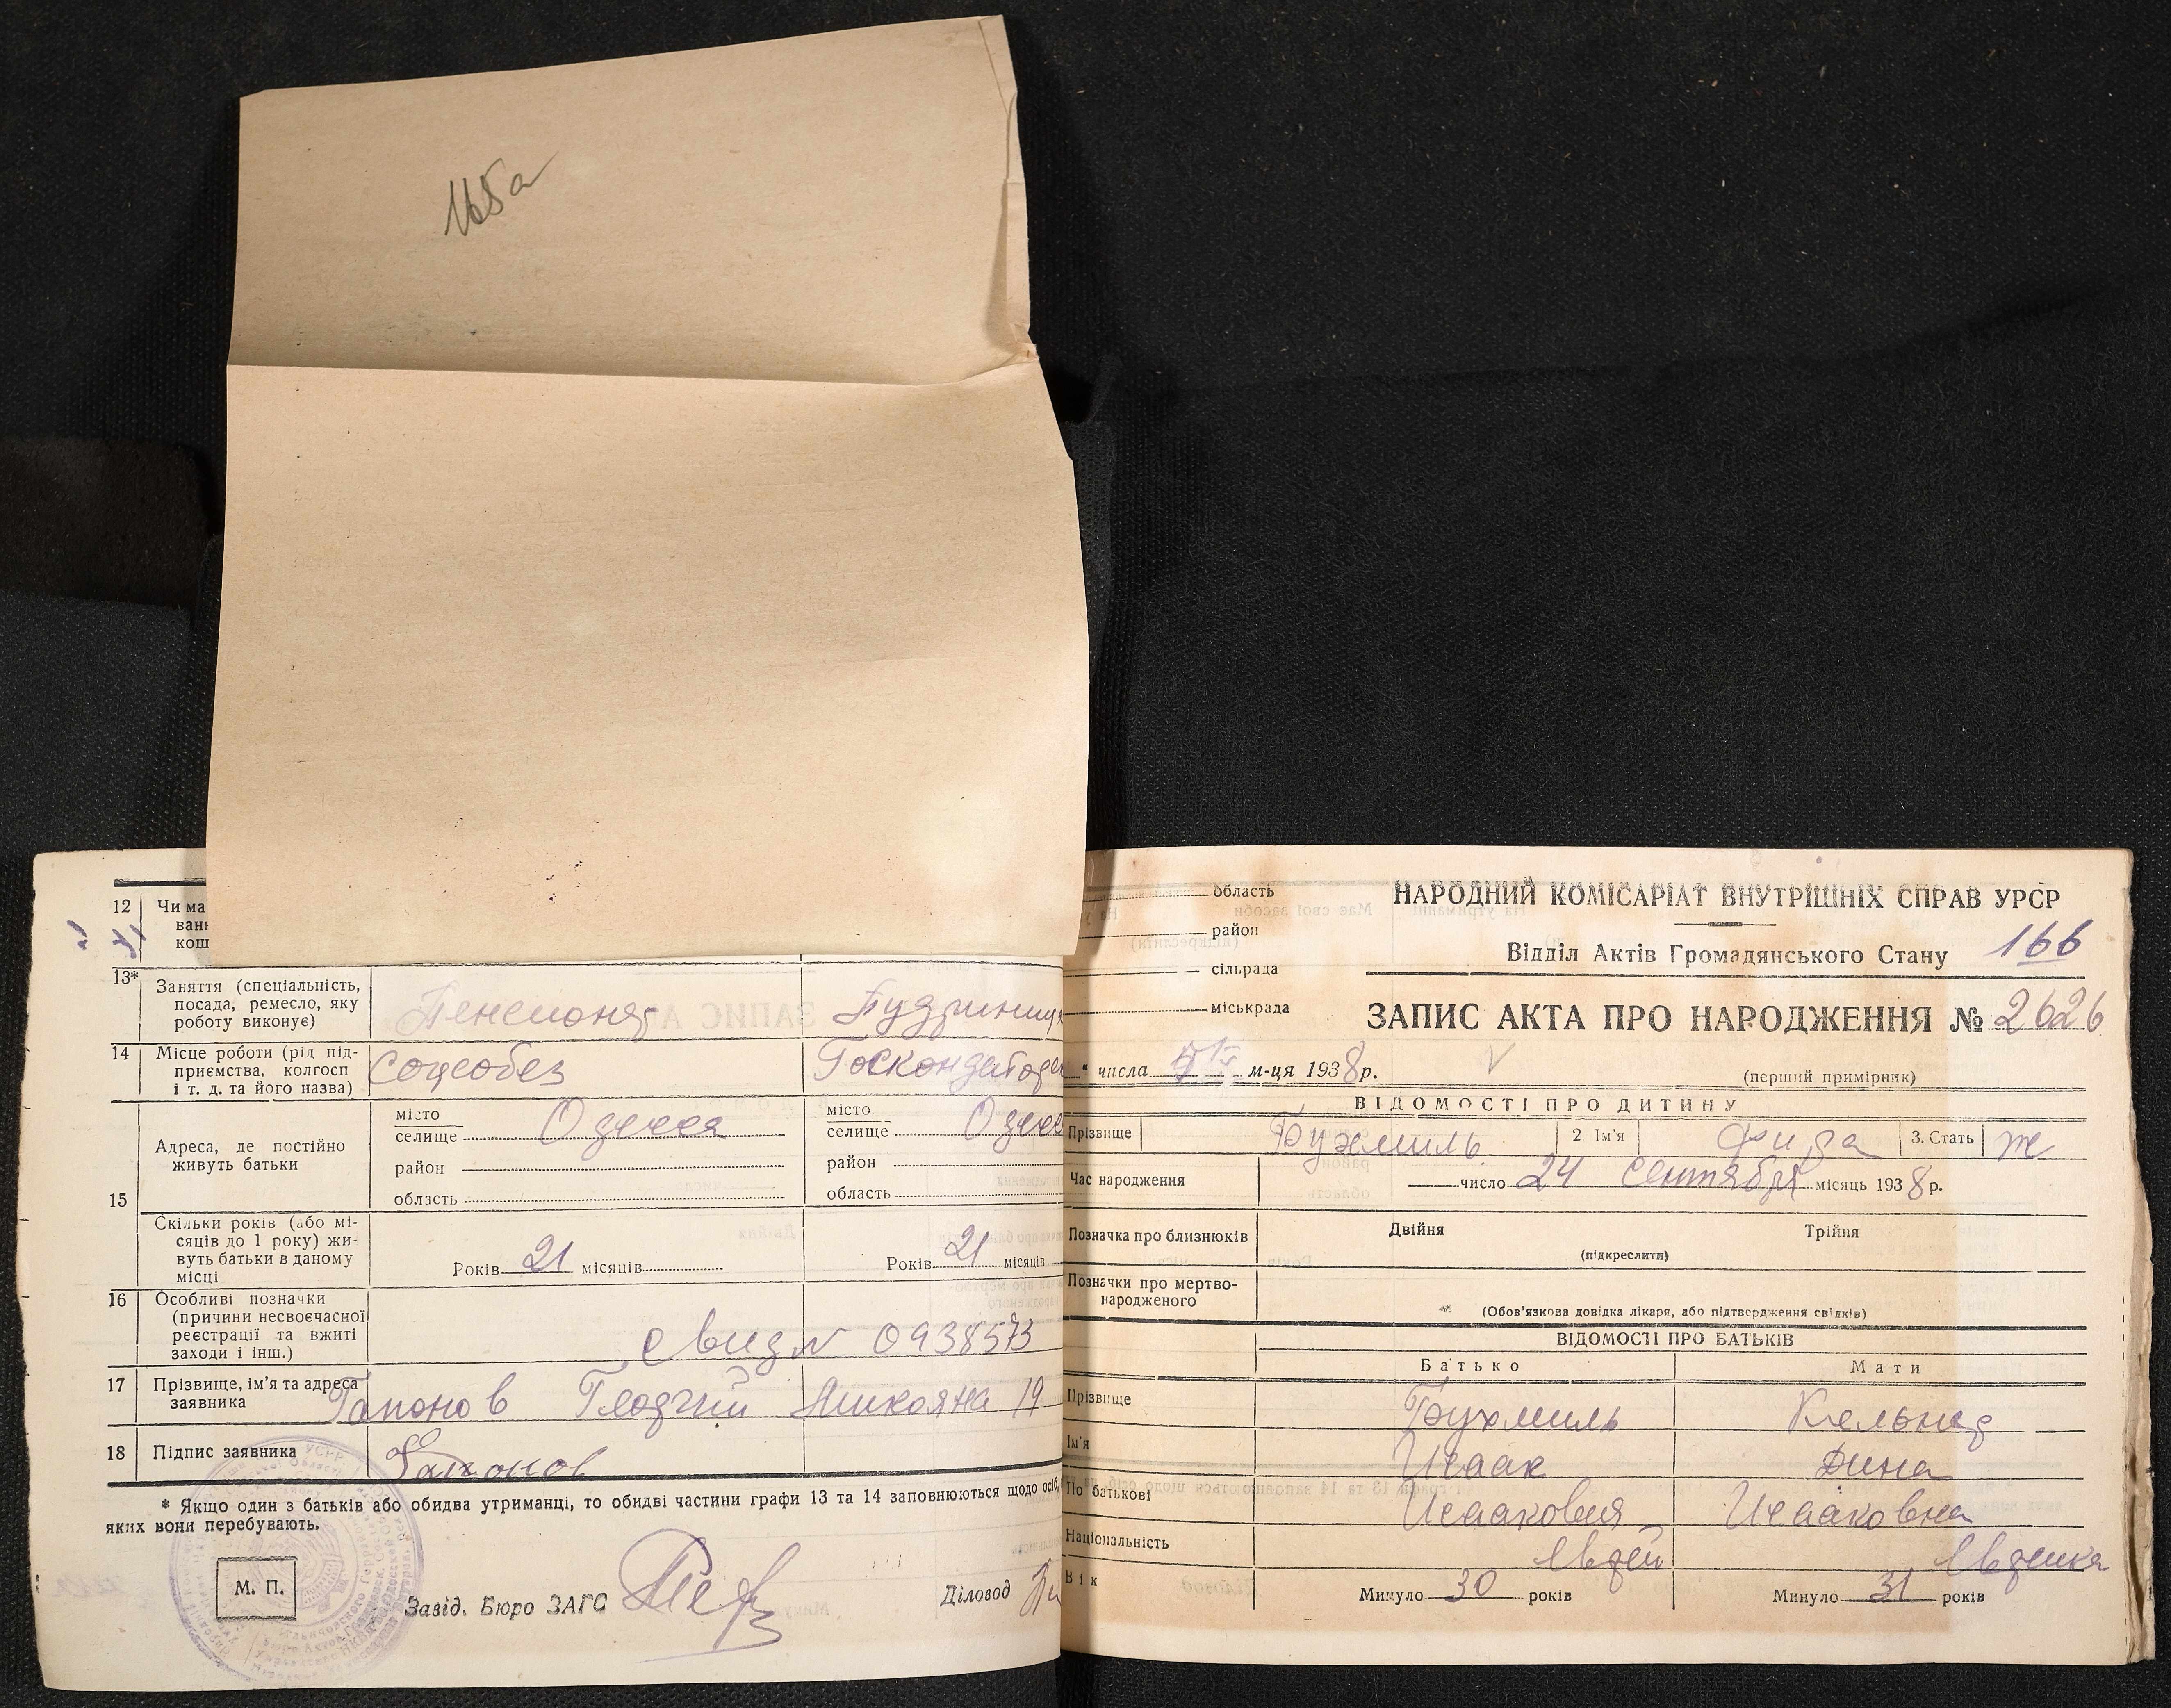 165а
12
Чи ма
ван
кош
13*
Заняття (спеціальність,
посада, ремесло, яку
роботу виконує)
Пенсионер
14
Місце роботи (рід під-
приємства, колгосп
і т. д. та його назва)
Соцобез
15
Адреса, де постійно
живуть батьки
місто
селище
Одесса
район
область
місто
селище
Одесс
район
область
Скільки років (або мі-
сяців до 1 року) жи-
вуть батьки в даному
місці
Років 21 місяців
Років 21 місяців
16
Особливі позначки
(причини несвоєчасної
реєстрації та вжиті
заходи і інш.)
Свид N 0938573
17
Прізвище, ім'я та адреса
заявника
Гапонов
18
Підпис заявника
Гапонов
* Якщо один з батьків або обидва утриманці, то обидві частини графи 13 та 14 заповнюються щодо осіб,
яких вони перебувають.
М. П.
Завід. Бюро ЗАГС
Діловод
область
район
сільрада
міськрада
НАРОДНИЙ КОМІСАРІАТ ВНУТРІШНІХ СПРАВ УРСР
Відділ Актів Громадянського Стану
166
ЗАПИС АКТА ПРО НАРОДЖЕННЯ № 2626
" числа м-ця 1938 р.
(перший примірник)
ВІДОМОСТІ ПРО ДИТИНУ
Прізвище
Бухмиль
2. Ім'я
Фира
3. Стать
ж
Час народження
число 24 сентября місяць 1938 р.
Позначка про близнюків
Двійня
Трійня
(підкреслити)
Позначки про мертво-
народженого
(Обов'язкова довідка лікаря, або підтвердження свідків)
ВІДОМОСТІ ПРО БАТЬКІВ
Батько
Мати
Прізвище
Бухмиль
Кельнер
Ім'я
Исаак
Дина
По батькові
Исаакович
Исааковна
Національність
Еврей
Еврейка
Вік
Минуло 30 років
Минуло 31 років